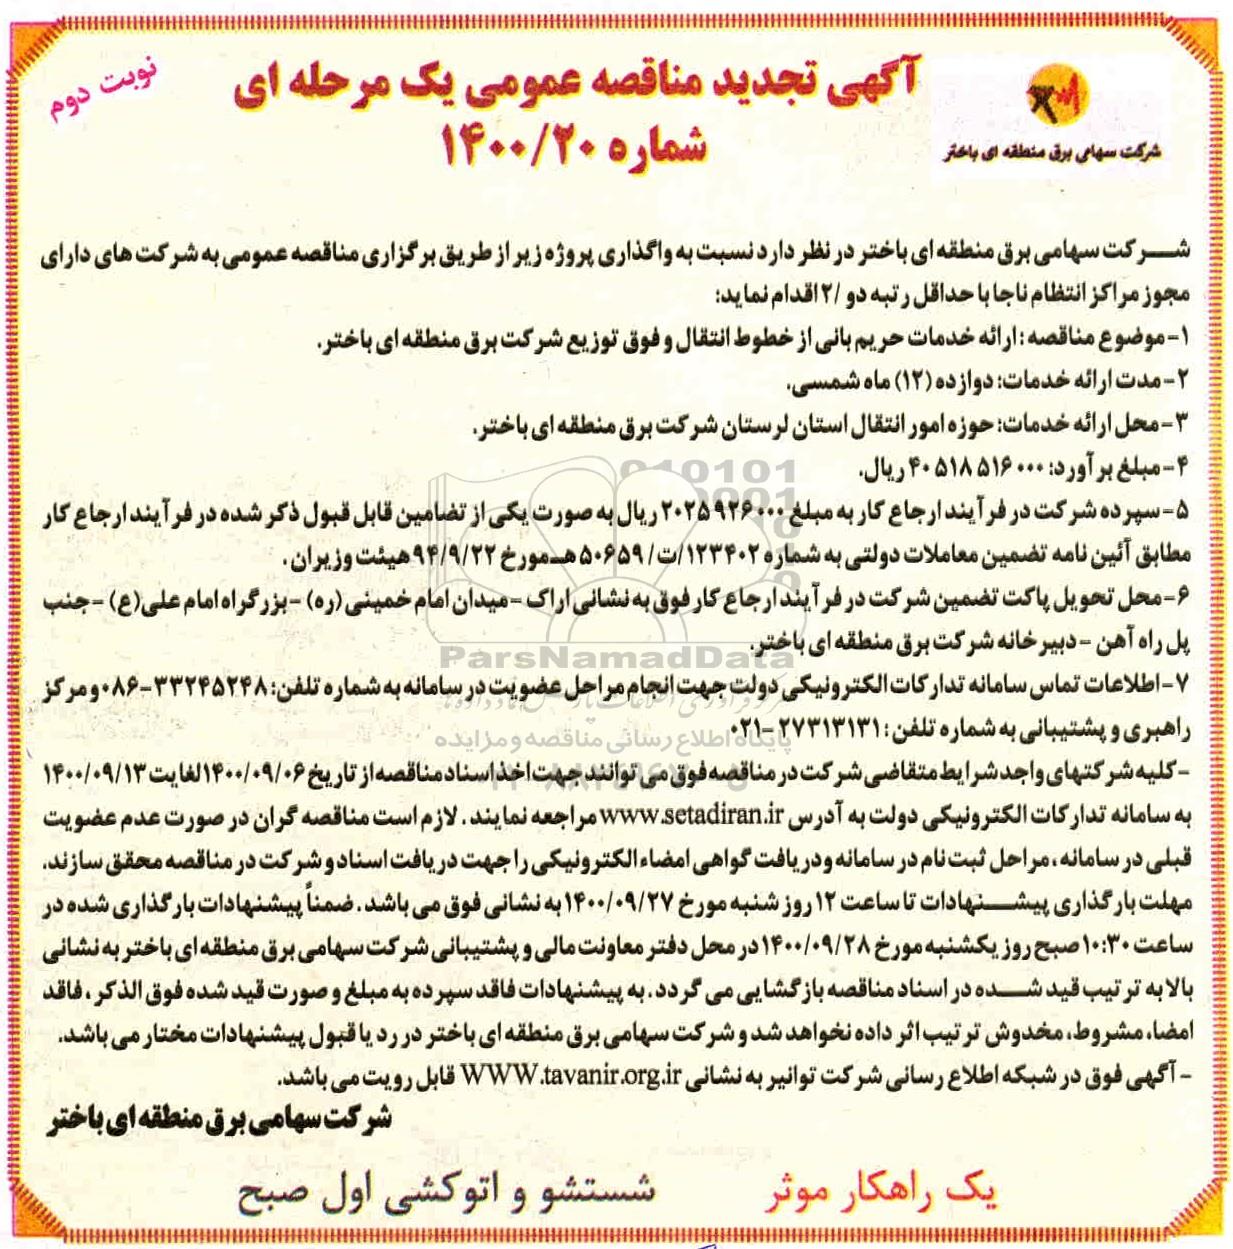 آگهی تجدید مناقصه عمومی یک مرحله ای
شماره ۱۴۰۰/۲۰
نوبت دوم
شرکت سهامی برق منطقه ای باختر
شرکت سهامی برق منطقه ای باختر در نظر دارد نسبت به واگذاری پروژه زیر از طریق برگزاری مناقصه عمومی به شرکت های دارای
مجوز مراکز انتظام ناجا با حداقل رتبه دو /۲ اقدام نماید:
۱-موضوع مناقصه : ارائه خدمات حریم بانی از خطوط انتقال و فوق توزیع شرکت برق منطقه ای باختر.
۲-مدت ارائه خدمات: دوازده (۱۲) ماه شمسی.
۳-محل ارائه خدمات: حوزه امور انتقال استان لرستان شرکت برق منطقه ای باختر.
۴-مبلغ برآورد: ۴۰ ۵۱۸ ۵۱۶ ۰۰۰ ریال.
۵-سپرده شرکت در فرآیند ارجاع کار به مبلغ ۲۰۲۵۹۲۶۰۰۰ ریال به صورت یکی از تضامین قابل قبول ذکر شده در فرآیند ارجاع کار
مطابق آئین نامه تضمین معاملات دولتی به شماره ۱۲۳۴۰۲/ت/ ۵۰۶۵۹هـ مورخ ۹۴/۹/۲۲ هیئت وزیران .
۶-محل تحویل پاکت تضمین شرکت در فرآیند ارجاع کار فوق به نشانی اراک -میدان امام خمینی (ره) -بزرگراه امام علی(ع) -جنب
پل راه آهن -دبیرخانه شرکت برق منطقه ای باختر.
۷-اطلاعات تماس سامانه تدارکات الکترونیکی دولت جهت انجام مراحل عضویت در سامانه به شماره تلفن: ۳۳۲۴۵۲۴۸-۰۸۶ و مرکز
راهبری و پشتیبانی به شماره تلفن : ۲۷۳۱۳۱۳۱ -۰۲۱
-کلیه شرکتهای واجد شرایط متقاضی شرکت در مناقصه فوق می توانند جهت اخذ اسناد مناقصه از تاریخ ۱۴۰۰/۰۹/۰۶ لغایت ۱۴۰۰/۰۹/۱۳
به سامانه تدارکات الکترونیکی دولت به آدرس www.setadiran.ir مراجعه نمایند . لازم است مناقصه گران در صورت عدم عضویت
قبلی در سامانه ، مراحل ثبت نام در سامانه ودریافت گواهی امضاء الکترونیکی را جهت دریافت اسناد و شرکت در مناقصه محقق سازند.
مهلت بارگذاری پیشنهادات تا ساعت ۱۲ روز شنبه مورخ ۱۴۰۰/۰۹/۲۷ به نشانی فوق می باشد . ضمناً پیشنهادات بارگذاری شده در
ساعت ۱۰:۳۰ صبح روز یکشنبه مورخ ۱۴۰۰/۰۹/۲۸ در محل دفتر معاونت مالی و پشتیبانی شرکت سهامی برق منطقه ای باختر به نشانی
بالا به ترتیب قید شده در اسناد مناقصه بازگشایی می گردد . به پیشنهادات فاقد سپرده به مبلغ و صورت قید شده فوق الذکر ، فاقد
امضا، مشروط، مخدوش ترتیب اثر داده نخواهد شد و شرکت سهامی برق منطقه ای باختر در رد یا قبول پیشنهادات مختار می باشد.
- آگهی فوق در شبکه اطلاع رسانی شرکت توانیر به نشانی WWW.tavanir.org.ir قابل رویت می باشد.
شرکت سهامی برق منطقه ای باختر
یک راهکار موثر شستشو و اتوکشی اول صبح
ParsNamadData
پایگاه اطلاع رسانی مناقصه و مزایده